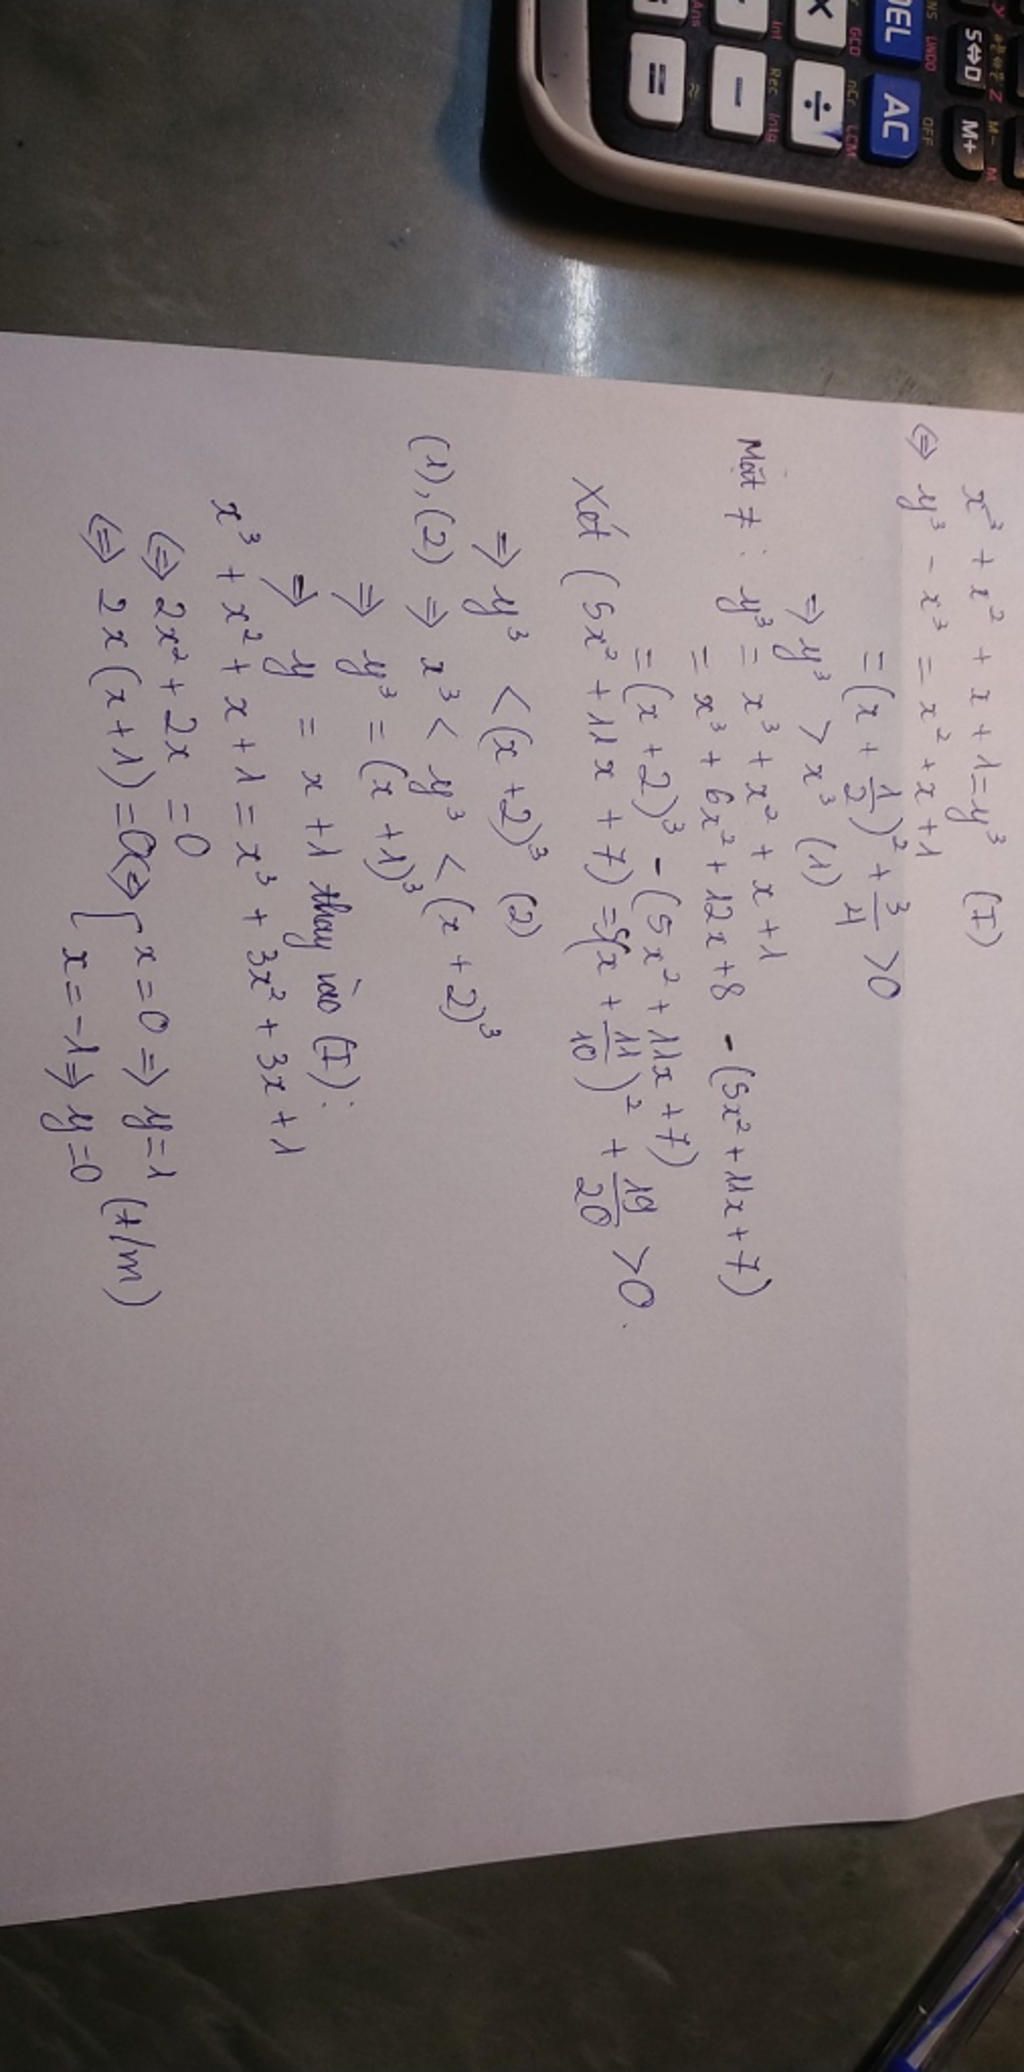 x³ + x² + x + 1 = y³ (I)
⇔ y³ - x³ = x² + x + 1
= (x + 1/2)² + 3/4 > 0
⇒ y³ > x³ (1)
Mặt ≠: y³ = x³ + x² + x + 1
= x³ + 6x² + 12x + 8 - (5x² + 11x + 7)
= (x + 2)³ - (5x² + 11x + 7)
Xét (5x² + 11x + 7) = 5(x + 11/10)² + 19/20 > 0.
⇒ y³ < (x + 2)³ (2)
(1), (2) ⇒ x³ < y³ < (x + 2)³
⇒ y³ = (x + 1)³
⇒ y = x + 1 thay vào (I):
x³ + x² + x + 1 = x³ + 3x² + 3x + 1
⇔ 2x² + 2x = 0
⇔ 2x (x + 1) = 0 ⇔ { x = 0 ⇒ y = 1
x = -1 ⇒ y = 0 (t/m)
DEL AC
S⇔D M+
× ÷
-
=
GCD LCM
nCr
OFF
UNDO
INS
Int Rec Intg
Ans
M- M
Z